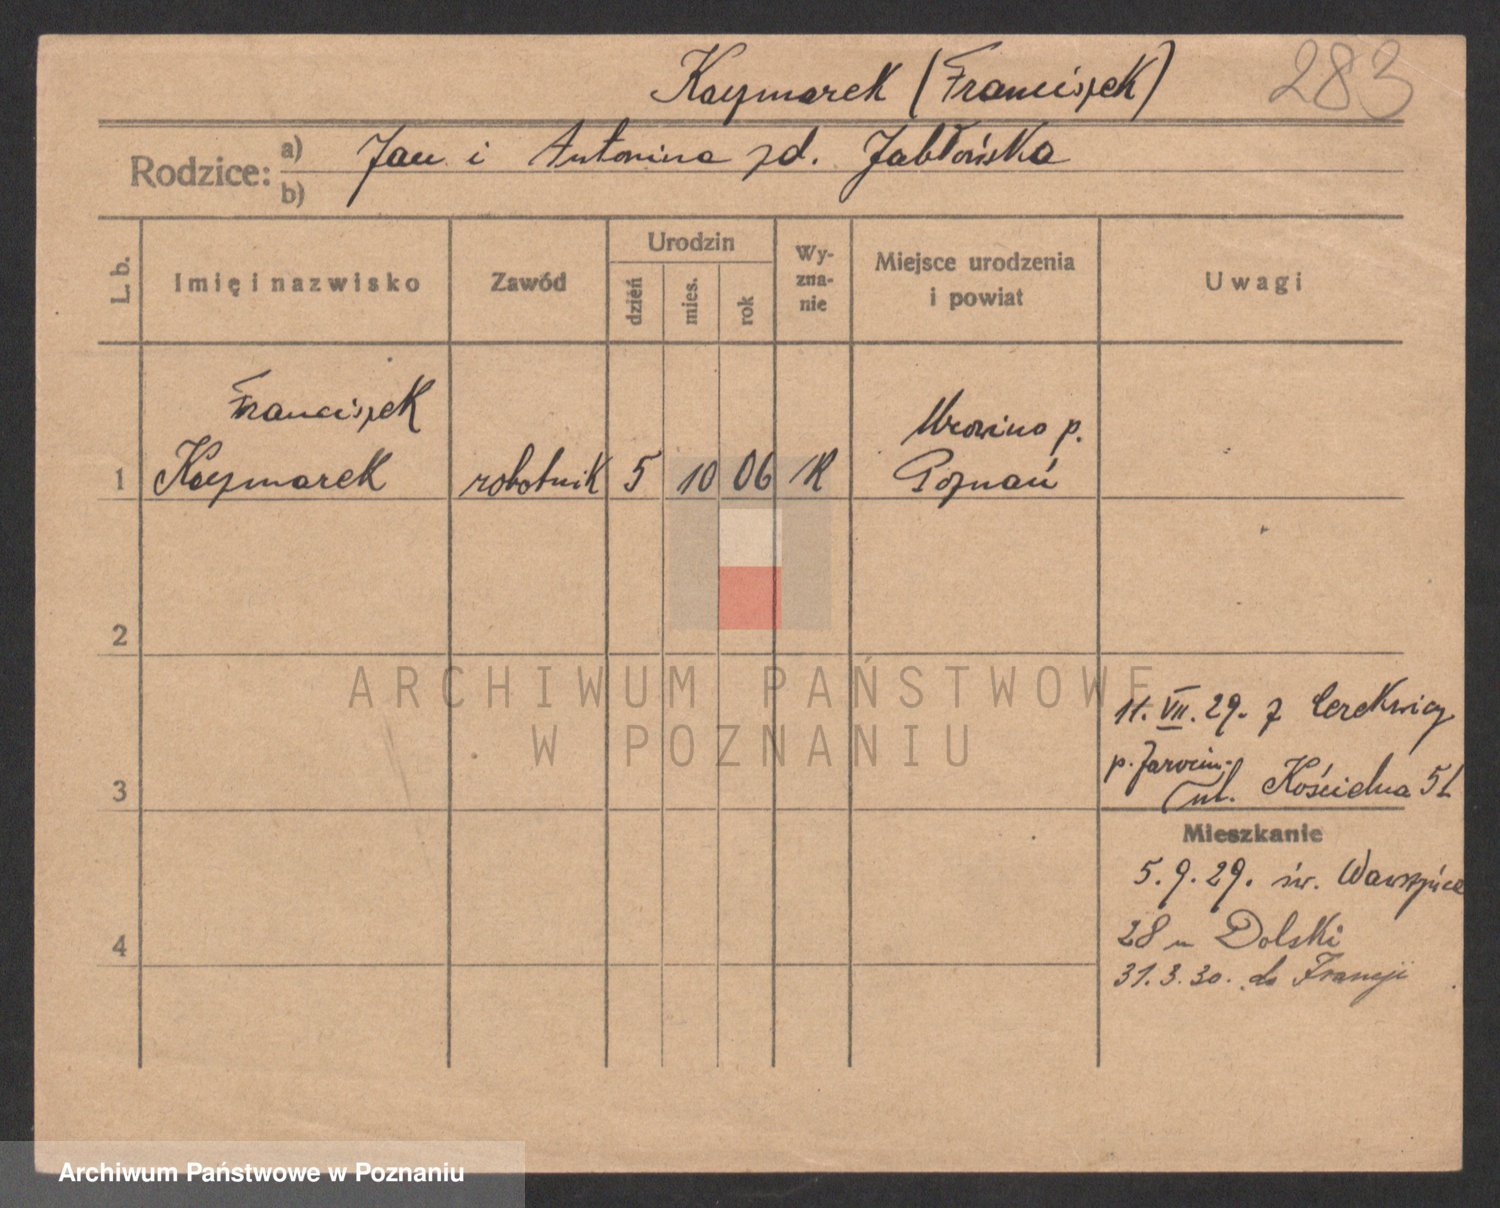 Kaczmarek (Franciszek) 283
Rodzice: a) b) Jan i Antonina zd. Jabłońska
L. b. Imię i nazwisko Zawód Urodzin dzień mies. rok Wy-zna-nie Miejsce urodzenia i powiat Uwagi
Franciszek
1 Kaczmarek robotnik 5 10 06 R Mrowino p.
Poznań
2
ARCHIWUM PAŃSTWOWE
W POZNANIU
11. VII. 29. z Cerekwicy
p. Jarocin.
3 ul. Kościelna 51
Mieszkanie
5.9.29. św. Wawrzyńca
4 28 u Dolski
31.3.30. do Francji
Archiwum Państwowe w Poznaniu